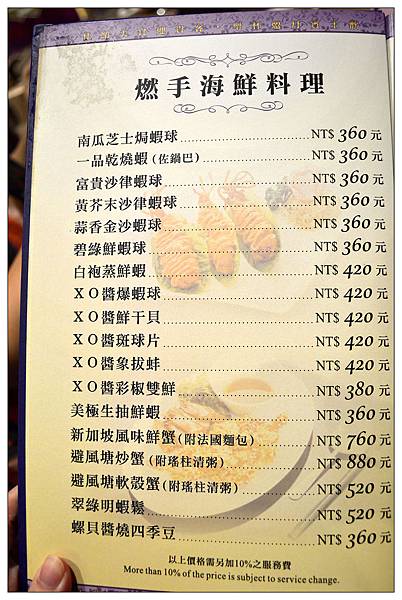 燃手海鮮料理
南瓜芝士焗蝦球 NT$ 360 元
一品乾燒蝦(佐鍋巴) NT$ 360 元
富貴沙律蝦球 NT$ 360 元
黃芥末沙律蝦球 NT$ 360 元
蒜香金沙蝦球 NT$ 360 元
碧綠鮮蝦球 NT$ 360 元
白袍蒸鮮蝦 NT$ 420 元
XO醬爆蝦球 NT$ 420 元
XO醬鮮干貝 NT$ 420 元
XO醬斑球片 NT$ 420 元
XO醬象拔蚌 NT$ 420 元
XO醬彩椒雙鮮 NT$ 380 元
美極生抽鮮蝦 NT$ 360 元
新加坡風味鮮蟹(附法國麵包) NT$ 760 元
避風塘炒蟹(附瑤柱清粥) NT$ 880 元
避風塘軟殼蟹(附瑤柱清粥) NT$ 520 元
翠綠明蝦鬆 NT$ 520 元
螺貝醬燒四季豆 NT$ 360 元
以上價格需另加10%之服務費
More than 10% of the price is subject to service change.